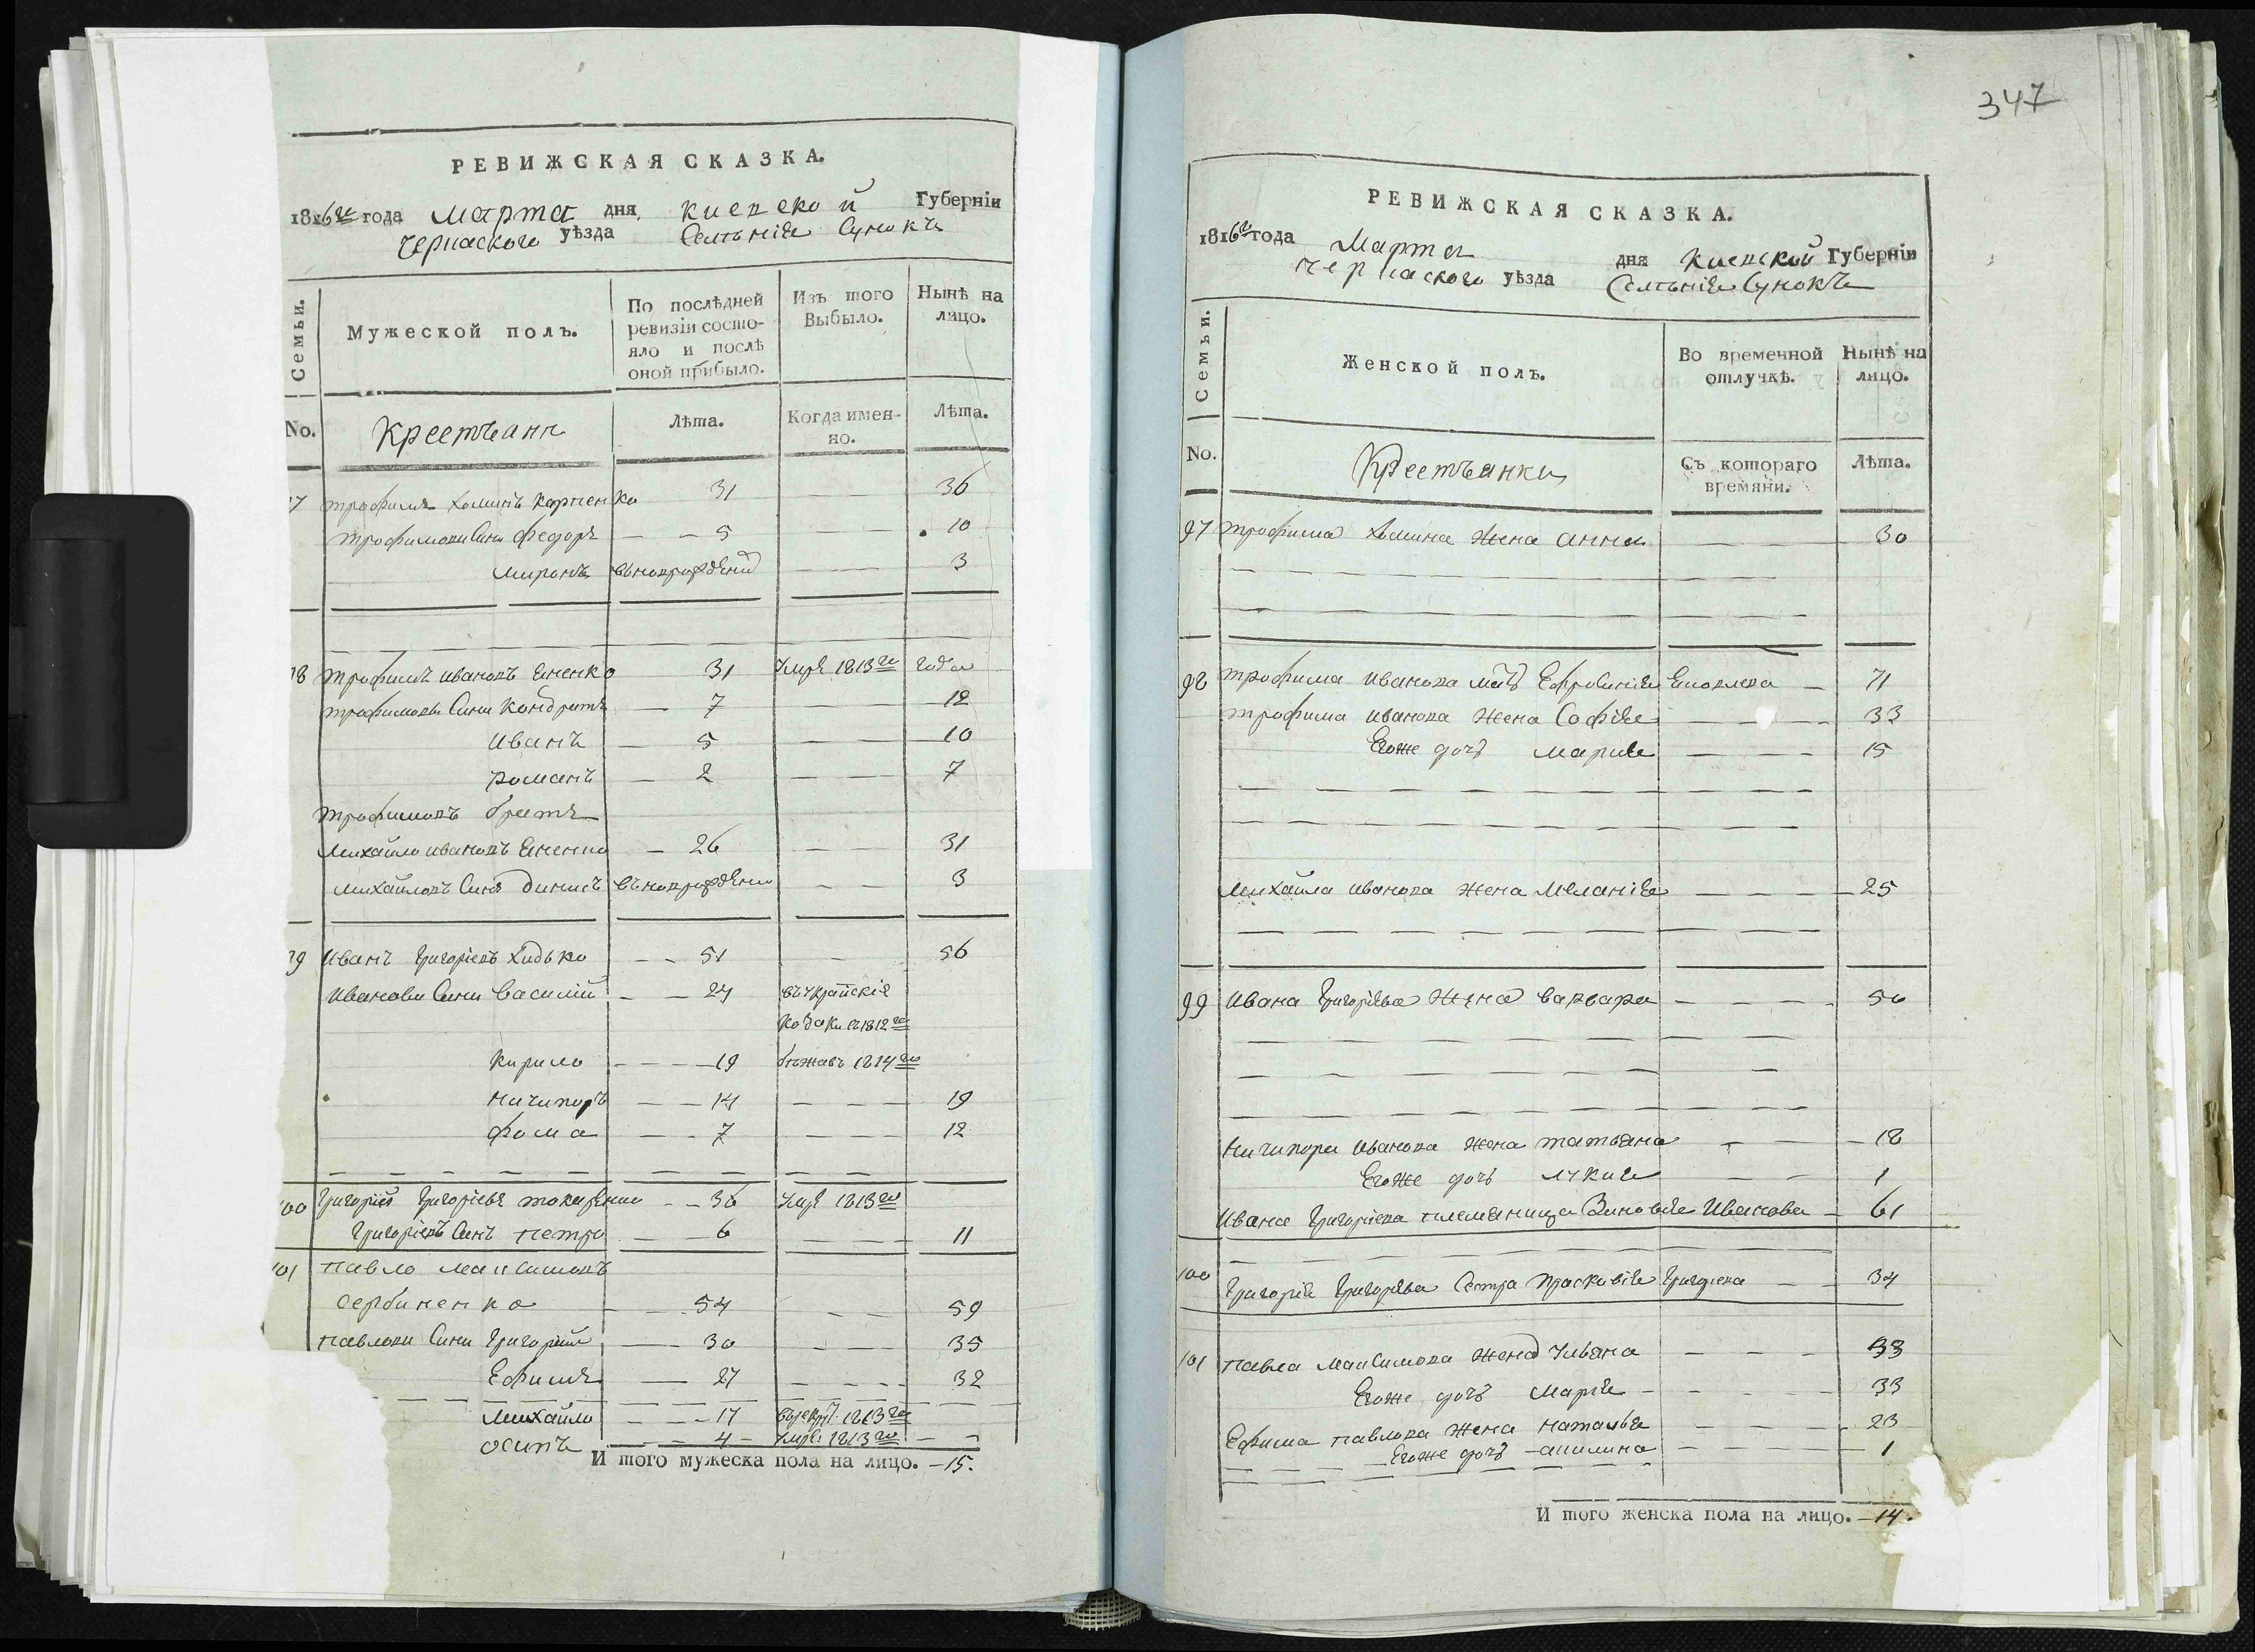 РЕВИЖСКАЯ СКАЗКА.
1816го года Марта дня Киевской Губерніи
Черкаского уѣзда Селѣнія Сунокъ
Семьи.
Мужеской полъ.
По послѣдней ревизіи состояло и послѣ оной прибыло.
Изъ того Выбыло.
Нынѣ на лицо.
No.
Крестьяни
Лѣта.
Когда именно.
Лѣта.
97 трофимъ хоминъ Карпенко 31 — 36
трофимови Сини федоръ — 5 — 10
миронъ вьноврождений — 3
98 трофимъ ивановъ Яненко 31 Умре 1813го года
трофимови Сини Кондратъ — 7 — 12
иванъ — 5 — 10
романъ — 2 — 7
трофимовъ братъ
михайло ивановъ Яненко — 26 — 31
михайловъ Синъ динисъ вьноврождени — 3
99 иванъ григоріевъ Хидько — 51 — 56
иванови Сини Василій — 24 въ украйскія
козаки въ 1812го
Кирило — 19 бѣжавъ 1814го
ничипоръ — 14 — 19
фома — 7 — 12
100 григорій григоріевъ — 36 Умре 1813го
григоріевъ Синъ петро — 6 — 11
101 павло максимовъ
сербиненко — 54 — 59
павлови Сини григорій — 30 — 35
Ефимъ — 27 — 32
михайло — 17 1813го
осипъ — 4 — Умре 1813го
И того мужеска пола на лицо. — 15.
347
РЕВИЖСКАЯ СКАЗКА.
1816го года Марта дня Киевской Губерніи
Черкаского уѣзда Селѣнія Сунокъ
Семьи.
Женской полъ.
Во временной отлучкѣ.
Нынѣ на лицо.
No.
Крестьянки
Съ котораго времяни.
Лѣта.
97 трофима хомина жена анна — 30
98 трофима иванова мать Ефросинія — 71
трофима иванова жена Софія — 33
Егоже дочь марія — 15
михайла иванова жена меланія — 25
99 ивана григоріева жена варвара — 50
ничипора иванова жена татьяна — 18
Егоже дочь лукия — 1
ивана григоріева племяница Зиновія Иванова — 61
100 григорія григорієва Сестра прасковія григоріева — 34
101 павла максимова жена ульяна — 53
Егоже дочь марія — 33
Ефима павлова жена наталья — 23
Егоже дочь акилина — 1
И того женска пола на лицо. — 14.